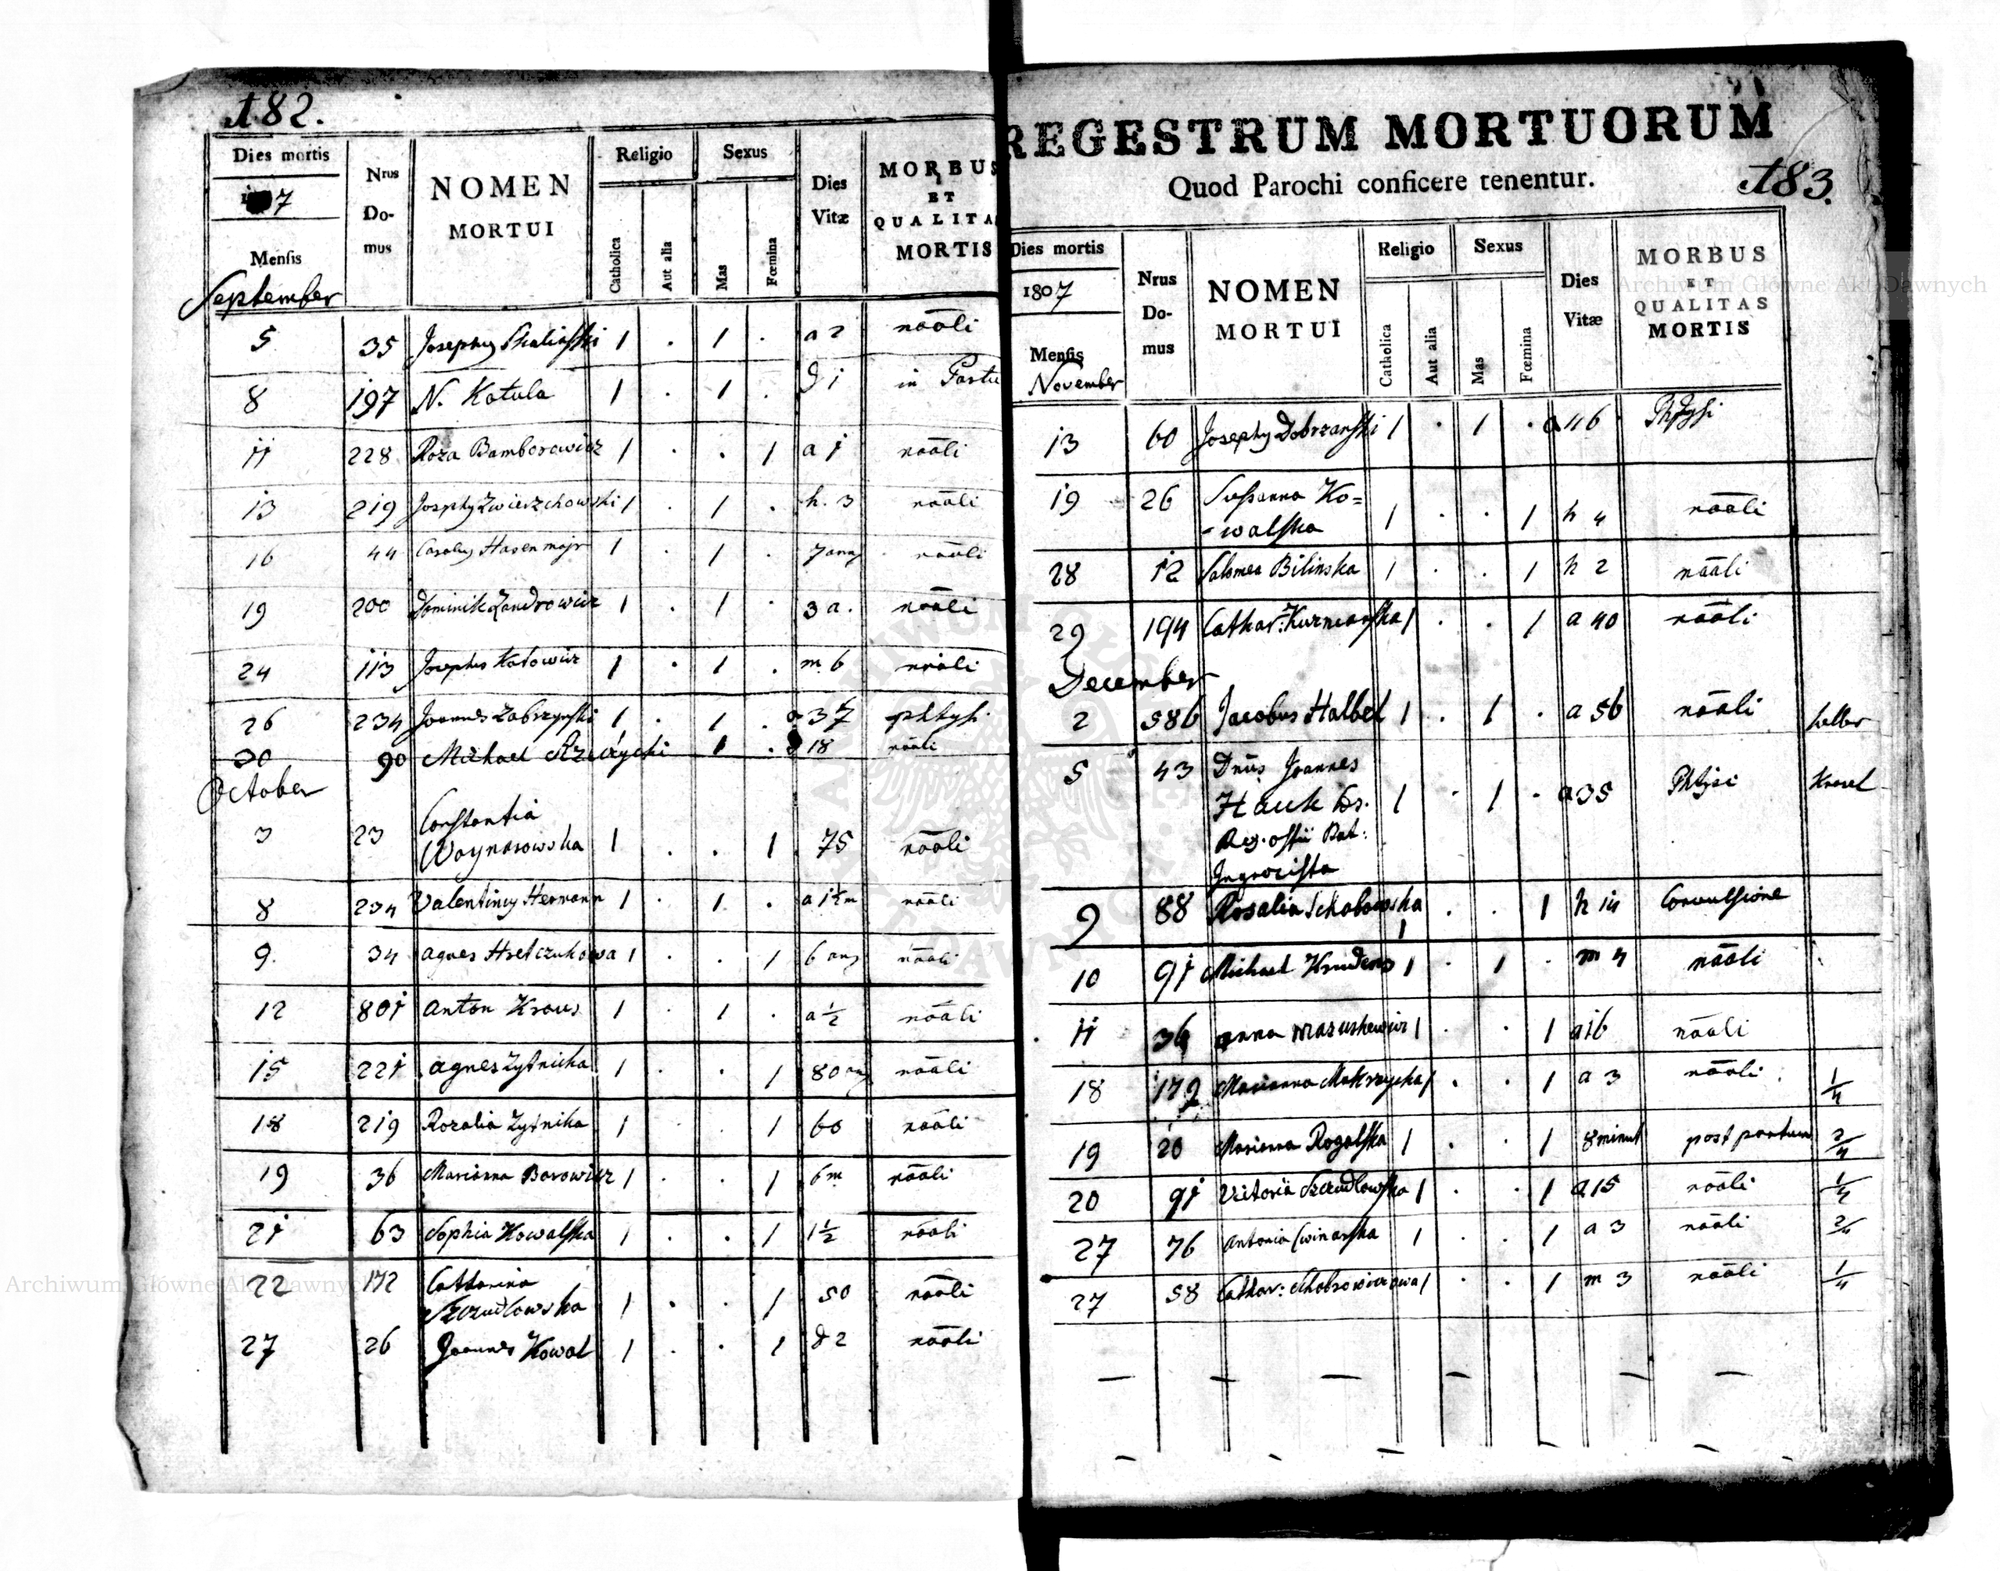 182.
Dies mortis
7
Mensis
September
Nrus
Do-
mus
NOMEN
MORTUI
Religio
Catholica
Aut alia
Sexus
Mas
Fœmina
Dies
Vitæ
MORBUS
ET
QUALITA
MORTIS
5 35 1 . 1 . a 2 nāāli
8 197 N. Katula 1 . 1 . d 1 in Partu
11 228 Roza Bamborowicz 1 . . 1 a 1 nāāli
13 219 Josephy Zwierzchowski 1 . 1 . h. 3 nāāli
16 44 Carolus Hasenmajr 1 . 1 . 7 nāāli
19 200 Dominik 1 . 1 . 3 a. nāāli
24 113 Josephus Katowicz 1 . 1 . m 6 nāāli
26 234 Joannes Zabrzynski 1 . 1 . a 37 phtysi
30 90 Michael 1 . d 18 nāāli
October
Constantia
3 23 Woynarowska 1 . . 1 75 nāāli
8 234 Valentiny Hermann 1 . 1 . a 1½ m nāāli
9. 34 agnes 1 . . 1 6 nāāli
12 801 anton Kraus 1 . 1 . a ½ nāāli
15 221 agnes Zytnicka 1 . . 1 80 nāāli
18 219 Rozalia Zytnika 1 . . 1 60 nāāli
19 36 Marianna Borowicz 1 . . 1 6 m nāāli
21 63 Sophia Kowalska 1 . . 1 1½ nāāli
22 172 Catharina
Szczudlowska 1 . . 1 50 nāāli
27 26 Joannes Kowal 1 . . 1 d 2 nāāli
REGESTRUM MORTUORUM
Quod Parochi conficere tenentur.
183.
Dies mortis
1807
Mensis
November
Nrus
Do-
mus
NOMEN
MORTUI
Religio
Catholica
Aut alia
Sexus
Mas
Fœmina
Dies
Vitæ
MORBUS
ET
QUALITAS
MORTIS
13 60 Josephy Dobrzanski 1 . 1 . a 46 Phtysi
19 26 Susanna Ko=
-walska 1 . . 1 h 4 nāāli
28 12 Salomea Bilinska 1 . . 1 h 2 nāāli
29 194 Cathar: 1 . . 1 a 40 nāāli
December
2 586 Jacobus Halbel 1 . 1 . a 56 nāāli
5 43 Dnus Joannes
Hauck
1 . 1 . a 35 Phtysi
Ingrocista
9 88 Rosalia 1 . . 1 h 14 Convulsione
10 91 Michael 1 . 1 . m 4 nāāli
11 36 anna 1 . . 1 a 16 nāāli
18 172 Marianna Mokrzycka 1 . . 1 a 3 nāāli 1/4
19 20 Marianna Rogalska 1 . . 1 8 minut post partum 2/4
20 91 Victoria Szczudlowska 1 . . 1 a 15 nāāli 1/4
27 76 Antonia Cwinarska 1 . . 1 a 3 nāāli 2/4
27 58 Cathar: 1 . . 1 m 3 nāāli 1/4
Archiwum Główne Akt Dawnych
Archiwum Główne Akt Dawnych